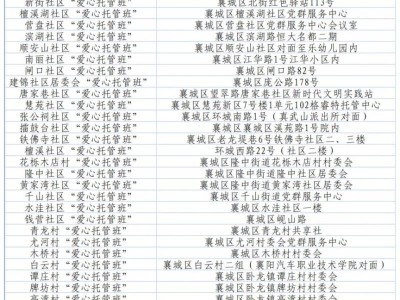 新街社区“爱心托管班” 襄城区北街红色驿站113号
檀溪湖社区“爱心托管班” 襄城区檀溪湖社区党群服务中心
营盘社区“爱心托管班” 襄城区营盘社区党群服务中心会议室
滨湖社区“爱心托管班” 襄城区滨湖路恒大名都二期
顺安山社区“爱心托管班” 襄城区顺安山社区对面至乐幼儿园内
南丽社区“爱心托管班” 襄城区江华路1号江华小区内
闸口社区“爱心托管班” 襄城区闸口路82号
建锦社区居委会“爱心托管班” 襄城区庞公路178号
唐家巷社区“爱心托管班” 襄城区望莘路唐家巷社区新时代文明实践站
慧苑社区“爱心托管班” 襄城区慧苑新区7号楼1单元102格睿特托管中心
张公祠社区“爱心托管班” 襄城区环城南路1号（真武山派出所对面）
擂鼓台社区“爱心托管班” 襄城区襄城区溪苑路1号院内
铁佛寺社区“爱心托管班” 襄城区老龙堤巷6号铁佛寺社区二、三楼
檀溪社区“爱心托管班” 环城西路22号（社区二楼）
花栎木店村“爱心托管班” 襄城区隆中街道花栎木店村村委会
隆中社区“爱心托管班” 襄城区隆中街道隆中社区居委会
黄家湾社区“爱心托管班” 襄城区隆中街道黄家湾社区居委会
千山社区“爱心托管班” 襄城区千山社区党群服务中心
水洼社区“爱心托管班” 襄城区水洼社区一楼
钱营社区“爱心托管班” 襄城区岘山路
青龙村“爱心托管班” 襄城区青龙村共享社
尤河村“爱心托管班” 襄城区尤河村委会党群服务中心
木桥村“爱心托管班” 襄城区木桥村村委会
白云村“爱心托管班” 襄城区白云村二组（襄阳汽车职业技术学院对面）
谭庄村“爱心托管班” 襄城区卧龙镇谭庄村村委会
牌坊村“爱心托管班” 襄城区卧龙镇牌坊村村委会
高湾村“爱心托管班” 襄城区卧龙镇高湾村村委会